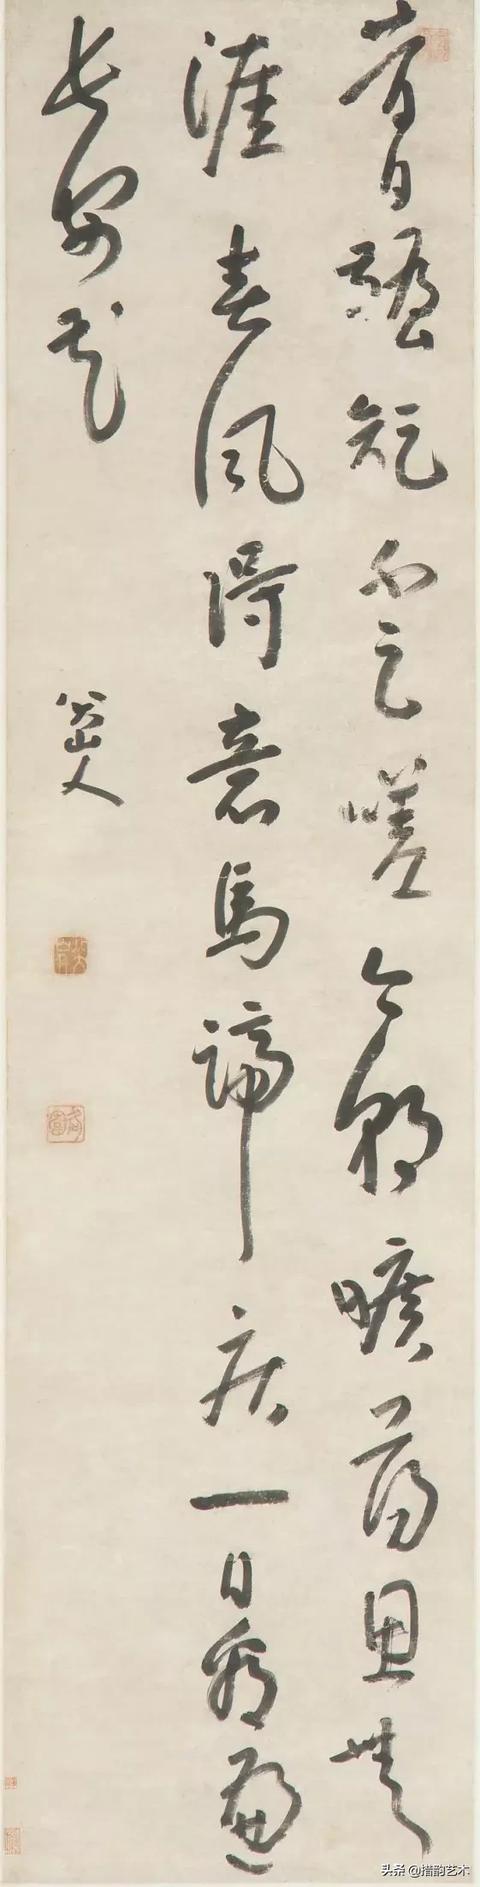 昔日不足嗟今朝曠蕩思無
涯春風得意馬蹄疾一日看盡
長安花
八大山人
头条 @措韵艺术